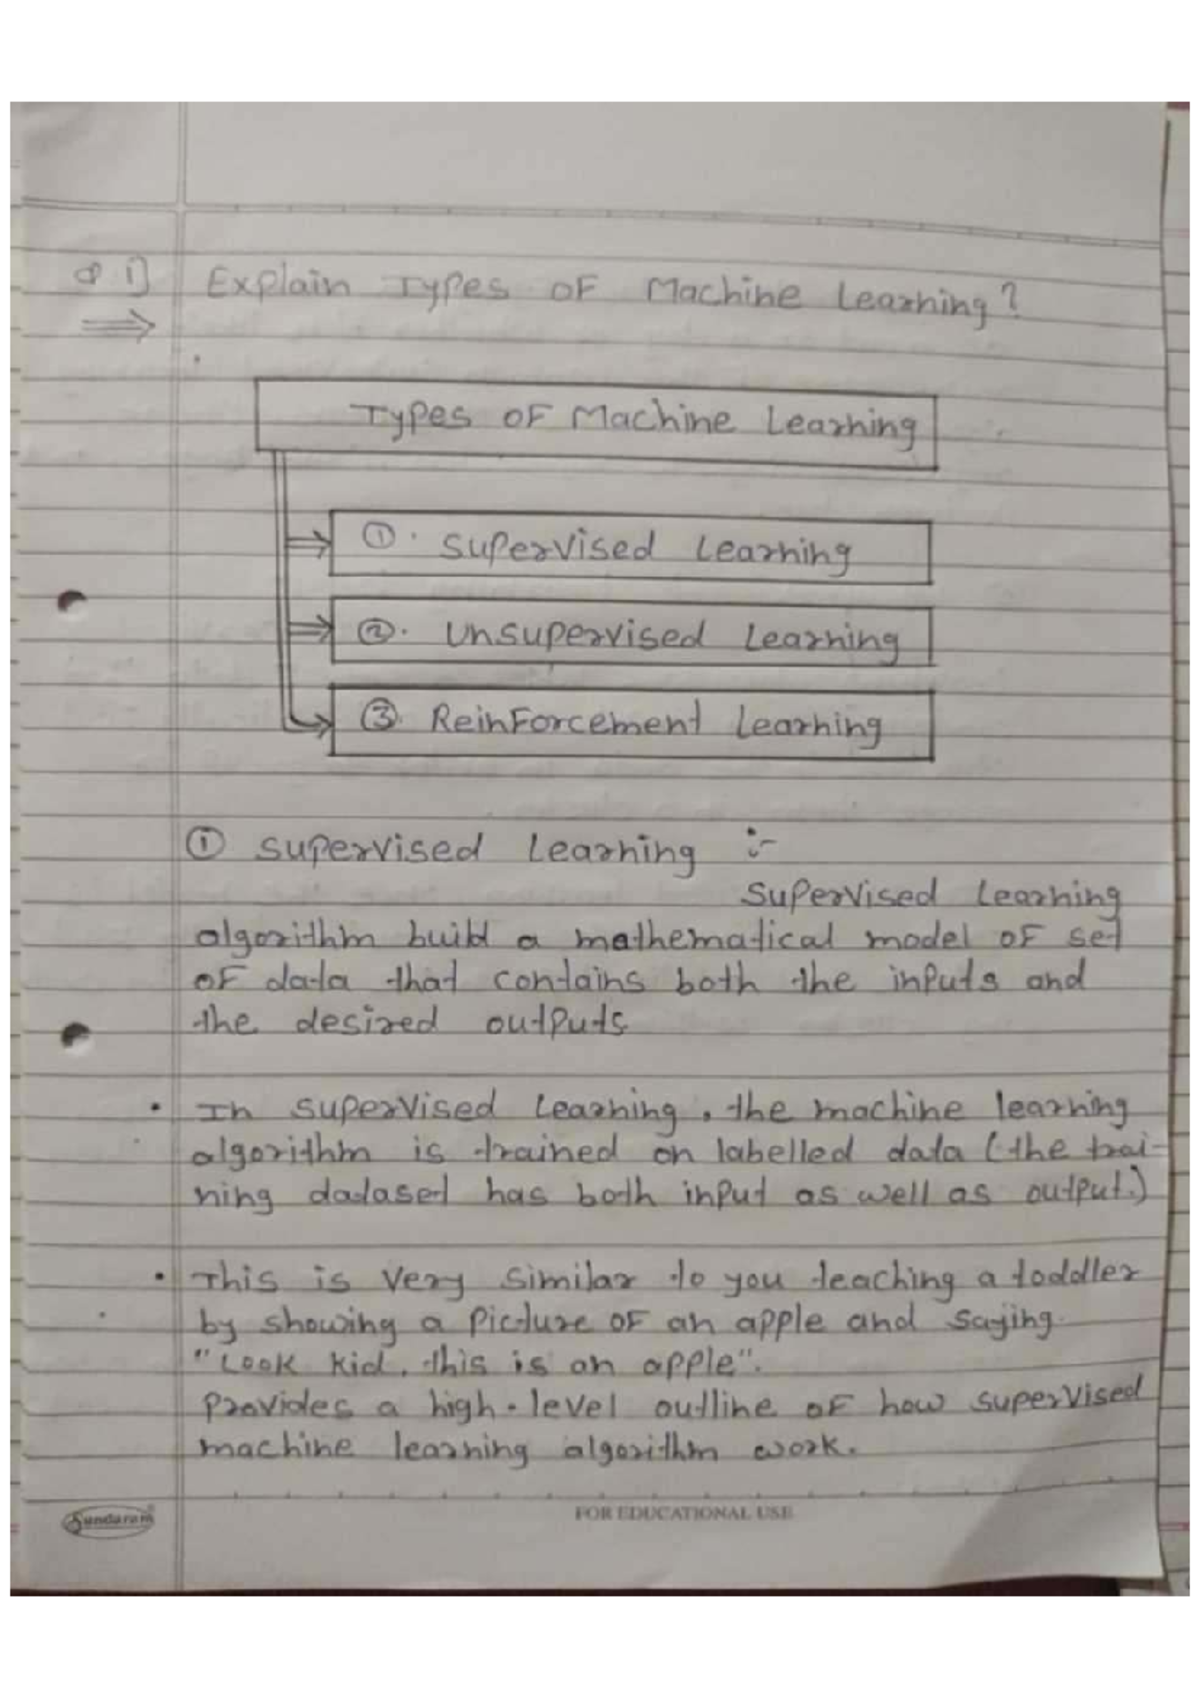 Q 1] Explain Types OF Machine Learning?
⇒
Types OF Machine Learning
①. Supervised Learning
②. Unsupervised Learning
③. Reinforcement Learning
① Supervised Learning :-
Supervised Learning
algorithm build a mathematical model OF set
OF data that contains both the inputs and
the desired outputs
• In supervised Learning, the machine learning
algorithm is trained on labelled data (the trai-
ning dataset has both input as well as output.)
• This is very similar to you teaching a toddler
by showing a picture OF an apple and saying.
"Look kid, this is an apple".
provides a high-level outline OF how supervised
machine learning algorithm work.
Sundaram
FOR EDUCATIONAL USE